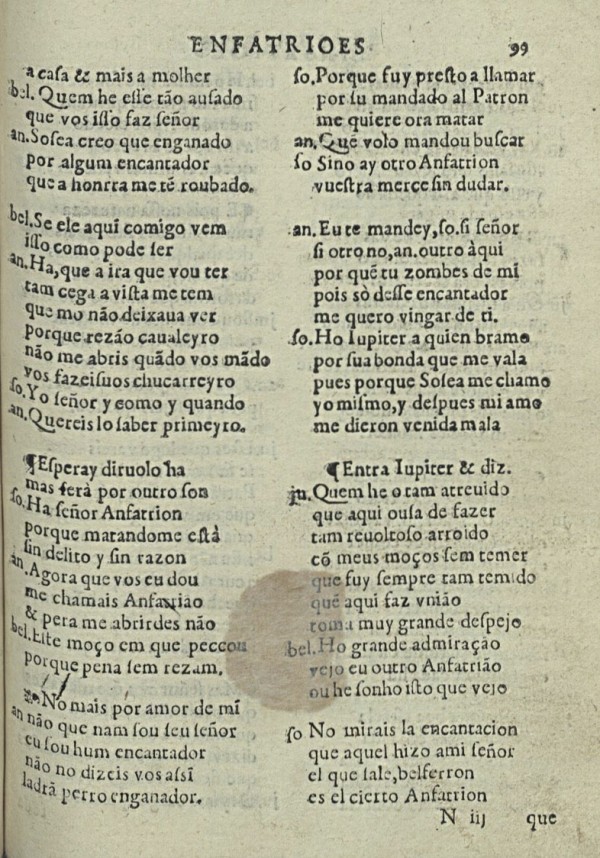 ENFATRIOES 99
a casa & mais a molher
bel. Quem he esse tão ausado
que vos isso faz señor
an. Sosea creo que enganado
por algum encantador
que a honrra me tẽ roubado.
bel. Se ele aqui comigo vem
isso como pode ser
an. Ha, que a ira que vou ter
tam cega a vista me tem
que mo não deixaua ver
porque rezão caualeyro
não me abris quãdo vos mãdo
vos fazeisuos chucarreyro
so. Yo señor y como y quando
an. Quereis lo saber primeyro.
¶Esperay diruolo ha
mas serà por outro son
so. Ha señor Anfatrion
porque matandome està
sin delito y sin razon
an. Agora que vos eu dou
me chamais Anfatrião
& pera me abrirdes não
bel. Este moço em que peccou
porque pena sem rezam.
No mais por amor de mĩ
an não que nam sou seu señor
eu sou hum encantador
não no dizeis vos assi
ladrâ perro enganador.
so. Porque fuy presto a llamar
por su mandado al Patron
me quiere ora matar
an. Quẽ volo mandou buscar
so Sino ay otro Anfatrion
vuestra merce sin dudar.
an. Eu te mandey, so. si señor
si otro no, an. outro àqui
por quẽ tu zombes de mĩ
pois sò desse encantador
me quero vingar de ti.
so. Ho Iupiter a quien bramo
por sua bonda que me vala
pues porque Sosea me chamo
yo mismo, y despues mi amo
me dieron venida mala
¶Entra Iupiter & diz.
ju. Quem he o tam atreuido
que aqui ousa de fazer
tam reuoltoso arroido
cõ meus moços sem temer
que fuy sempre tam temido
quẽ aqui faz vnião
toma muy grande despejo
bel. Ho grande admiração
vejo eu outro Anfatrião
ou he sonho isto que vejo
so No mirais la encantacion
que aquel hizo ami señor
el que sale, belferron
es el cierto Anfatrion
N iij que